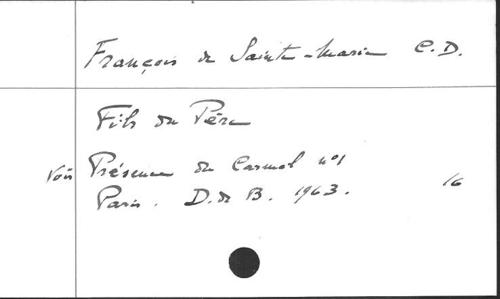 François de Sainte-Marie C.D.
Fils du Père
voir Présence du Carmel n°1
Paris. D. de B. 1963. 16